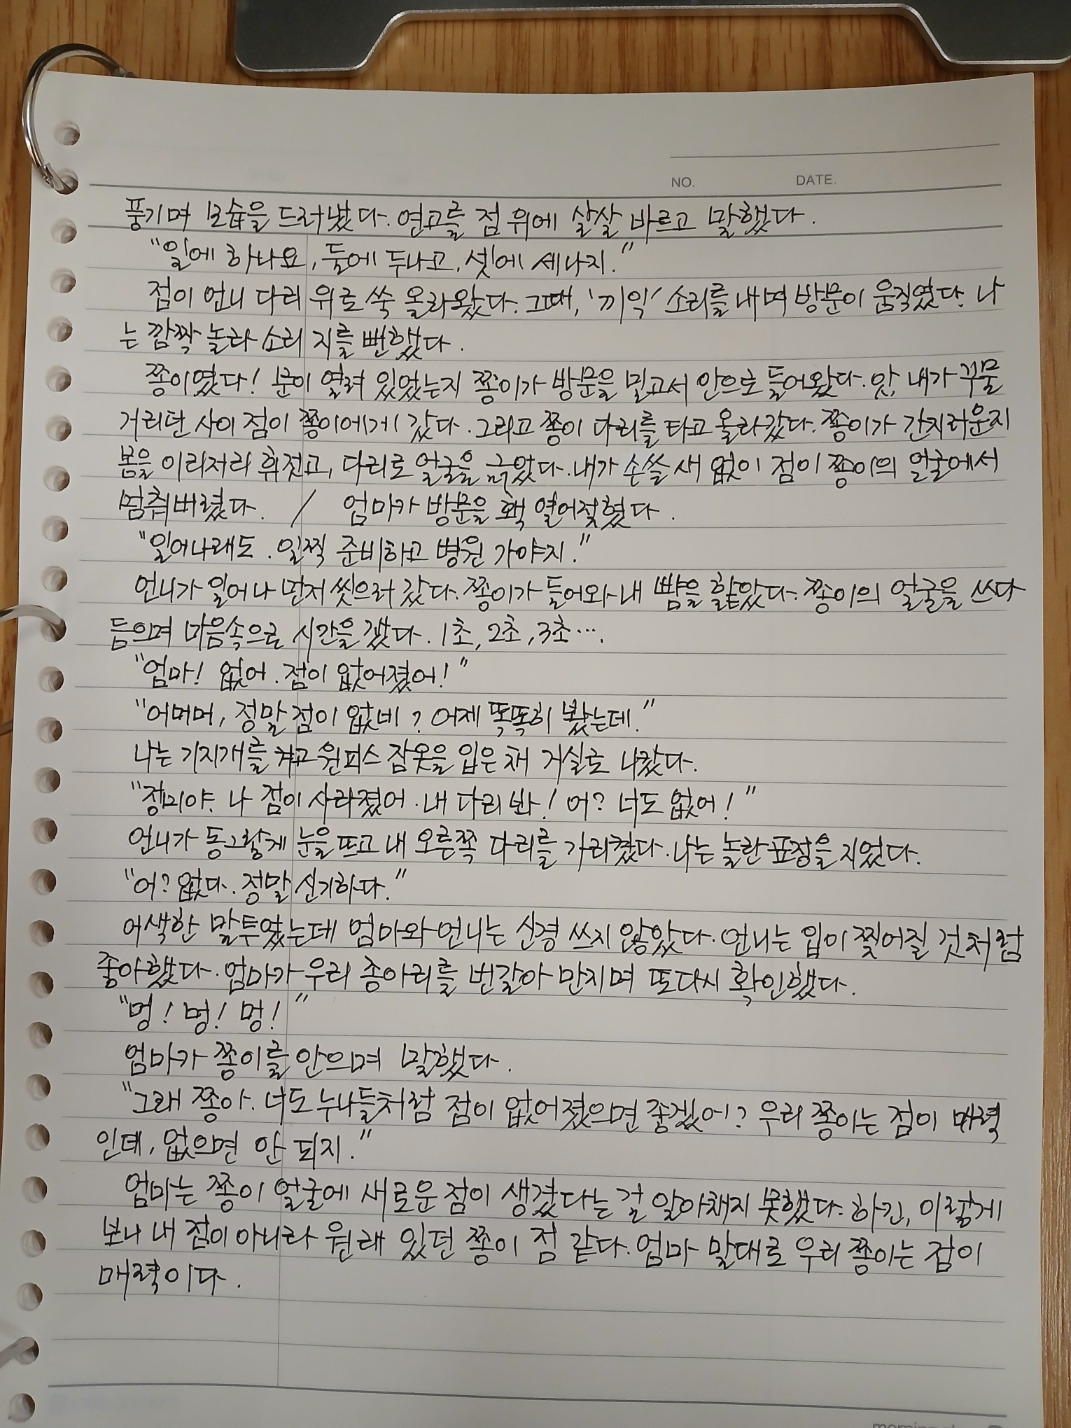 NO. DATE.
풍기며 모습을 드러냈다. 연고를 점 위에 살살 바르고 말했다.
"일에 하나요, 둘에 두나고, 셋에 세나지."
점이 언니 다리 위로 쑥 올라왔다. 그때, '끼익' 소리를 내며 방문이 움직였다. 나
는 깜짝 놀라 소리 지를 뻔했다.
쫑이였다! 문이 열려 있었는지 쫑이가 방문을 밀고서 안으로 들어왔다. 앗, 내가 꾸물
거리던 사이 점이 쫑이에게 갔다. 그리고 쫑이 다리를 타고 올라갔다. 쫑이가 간지러운지
몸을 이리저리 휘젓고, 다리로 얼굴을 긁았다. 내가 손쓸 새 없이 점이 쫑이의 얼굴에서
멈춰버렸다. / 엄마가 방문을 홱 열어젖혔다.
"일어나래도. 일찍 준비하고 병원 가야지."
언니가 일어나 먼저 씻으러 갔다. 쫑이가 들어와 내 뺨을 핥았다. 쫑이의 얼굴을 쓰다
듬으며 마음속으로 시간을 쟀다. 1초, 2초, 3초….
"엄마! 없어. 점이 없어졌어!"
"어머머, 정말 점이 없네? 어제 똑똑히 봤는데."
나는 기지개를 켜고 원피스 잠옷을 입은 채 거실로 나갔다.
"정미야. 나 점이 사라졌어. 내 다리 봐! 어? 너도 없어!"
언니가 동그랗게 눈을 뜨고 내 오른쪽 다리를 가리켰다. 나는 놀란 표정을 지었다.
"어? 없다. 정말 신기하다."
어색한 말투였는데 엄마와 언니는 신경 쓰지 않았다. 언니는 입이 찢어질 것처럼
좋아했다. 엄마가 우리 종아리를 번갈아 만지며 또다시 확인했다.
"멍! 멍! 멍!"
엄마가 쫑이를 안으며 말했다.
"그래 쫑아. 너도 누나들처럼 점이 없어졌으면 좋겠어? 우리 쫑이는 점이 매력
인데, 없으면 안 되지."
엄마는 쫑이 얼굴에 새로운 점이 생겼다는 걸 알아채지 못했다. 하긴, 이렇게
보니 내 점이 아니라 원래 있던 쫑이 점 같다. 엄마 말대로 우리 쫑이는 점이
매력이다.